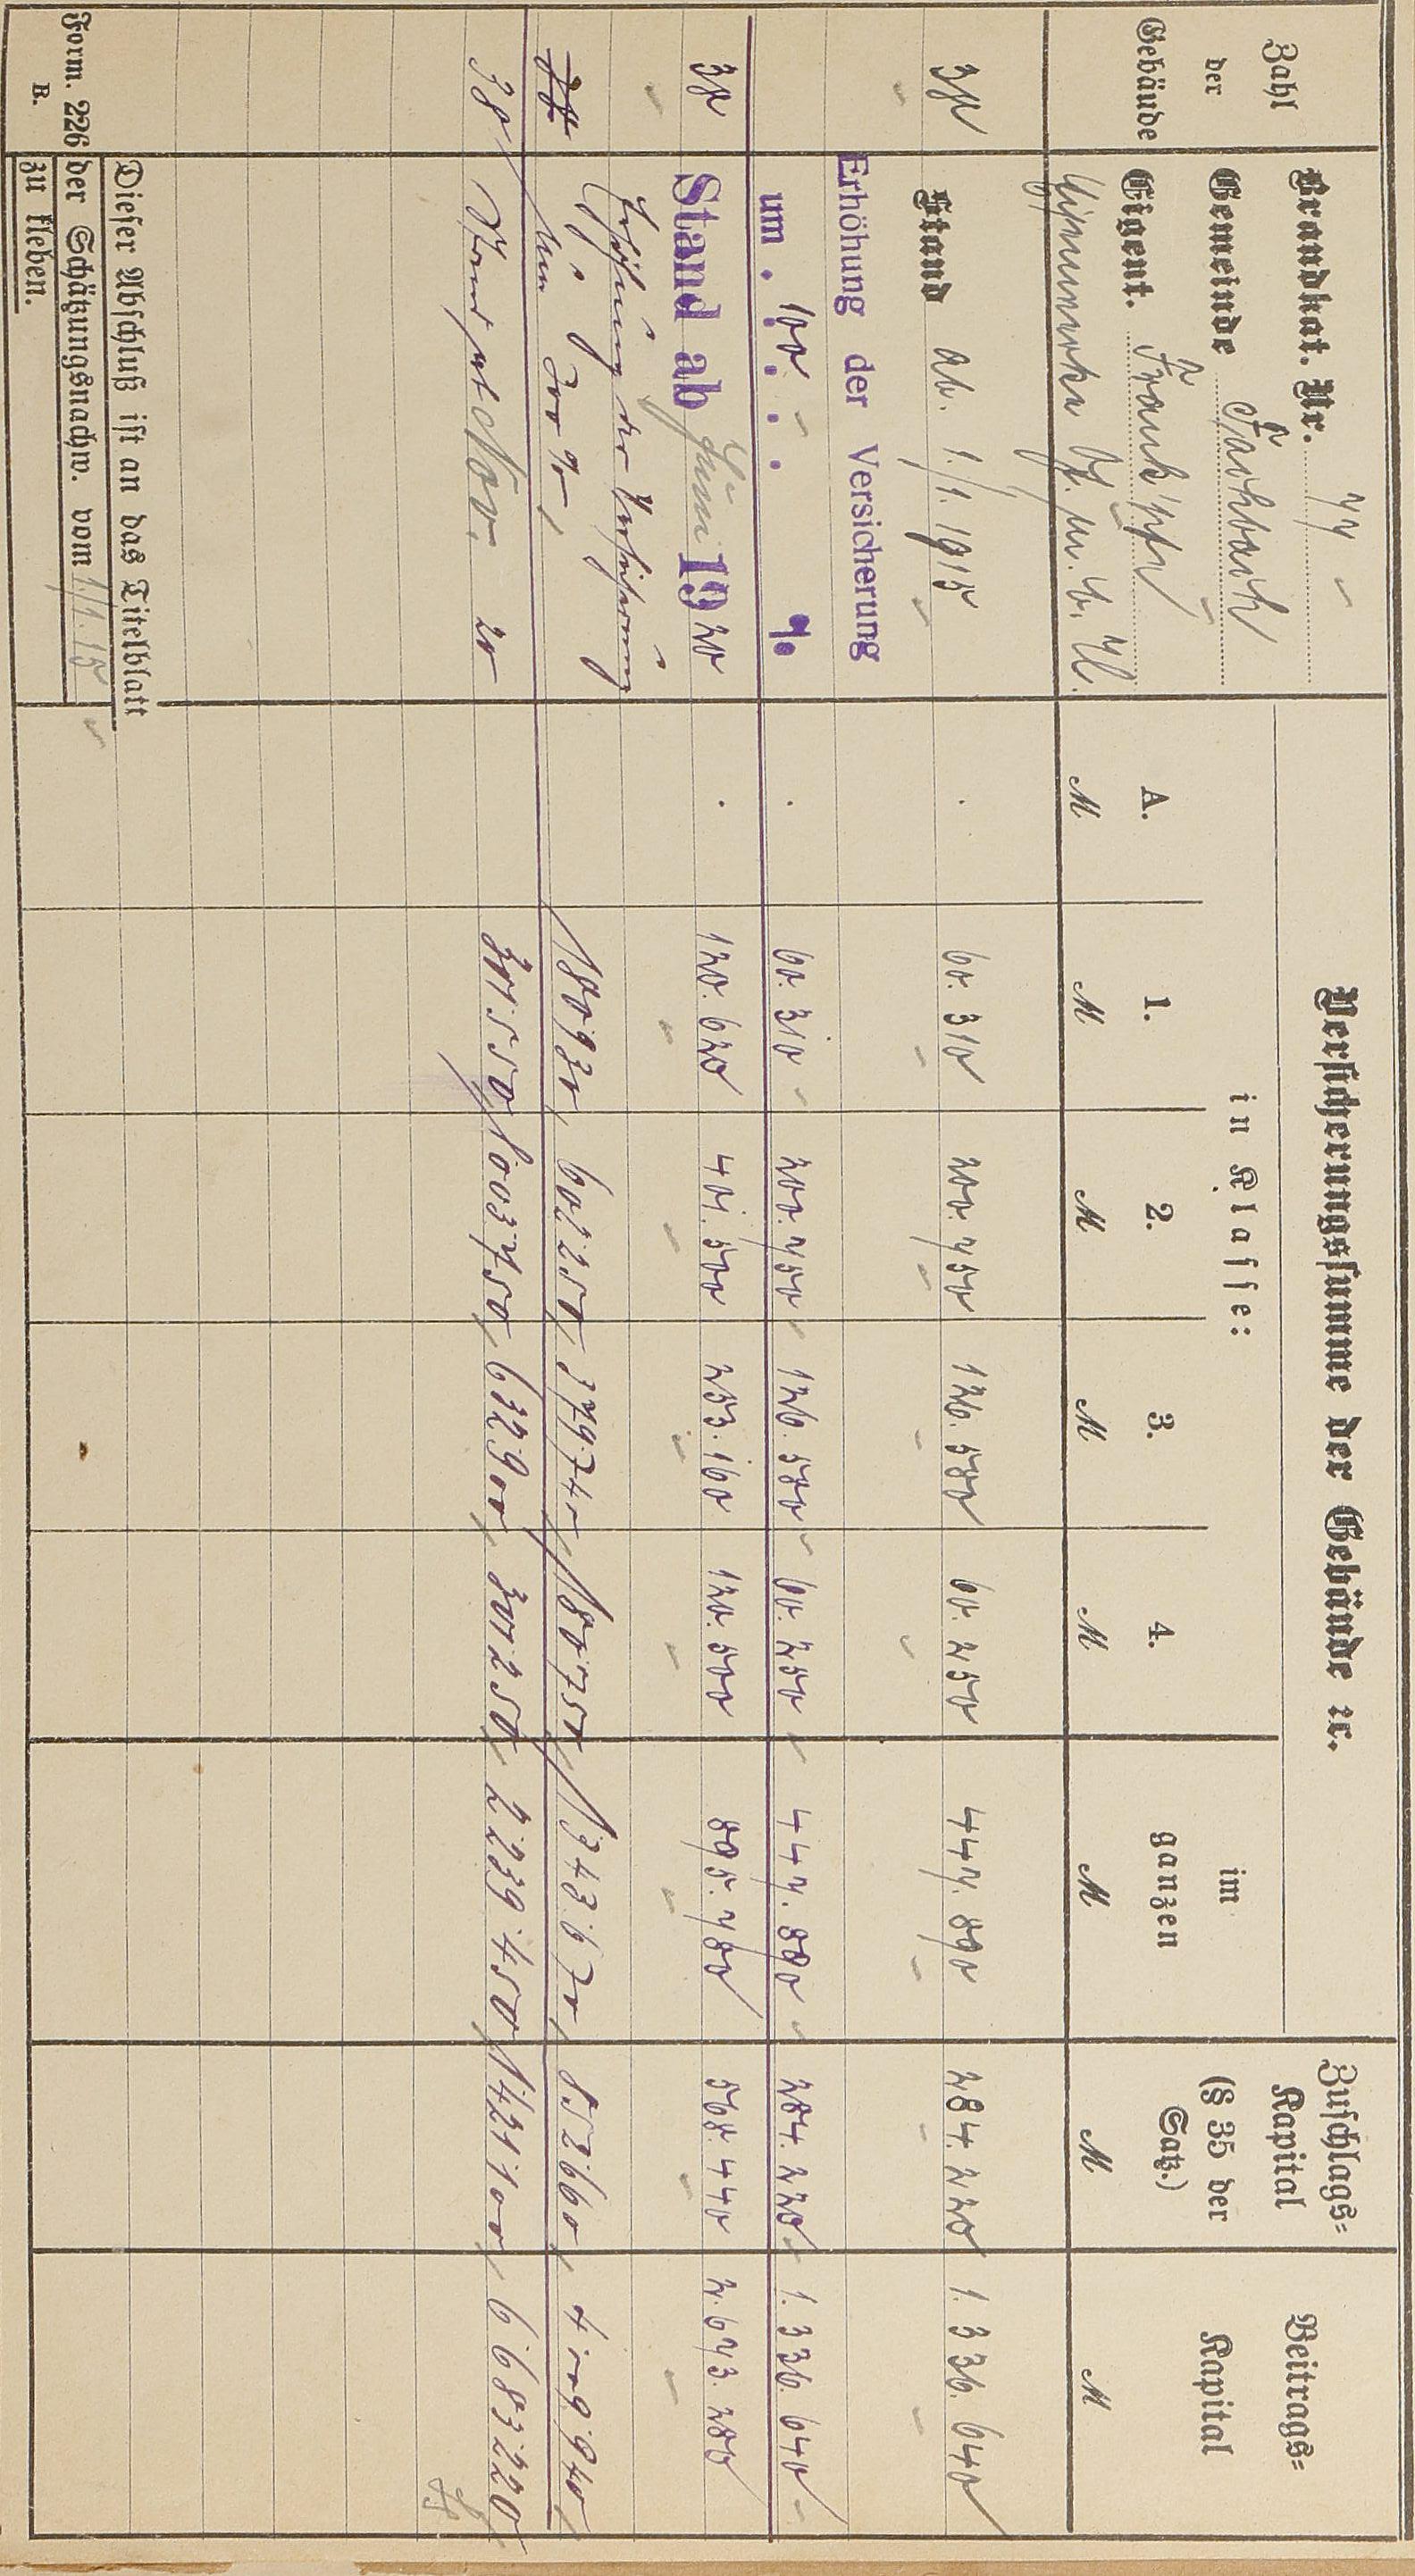 Zahl
der
Gebäude
Brandkat. Nr. 77
Gemeinde Fachbach
Eigent.
Versicherungssumme der Gebäude ꝛc.
in Klasse:
A.
1.
2.
3.
4.
im
ganzen
Zuschlags=
Kapital
(§ 35 der
Satz.)
Beitrags=
Kapital
M M M M M M M M
38 Stand ab. 1./1. 1915 . 60.310 200.750 126.580 60.250 447.890 284.220 1.336.640
Erhöhung der Versicherung
um . 100 . . . % . 60.310 200.750 126.580 60.250 447.890 284.220 1.336.640
38 Stand ab Juni 1920 . 120.620 401.500 253.160 120.500 895.780 568.440 2.673.280
Erhöhung der Versicherung
um 300 % 180930 602250 379740 180750 1343670 852660 4009940
38 Stand seit Nov. 20 301550 1003750 632900 301250 2239450 1421100 6683220
Dieser Abschluß ist an das Titelblatt
Form. 226 der Schätzungsnachw. vom 1/1. 15
B. zu kleben.